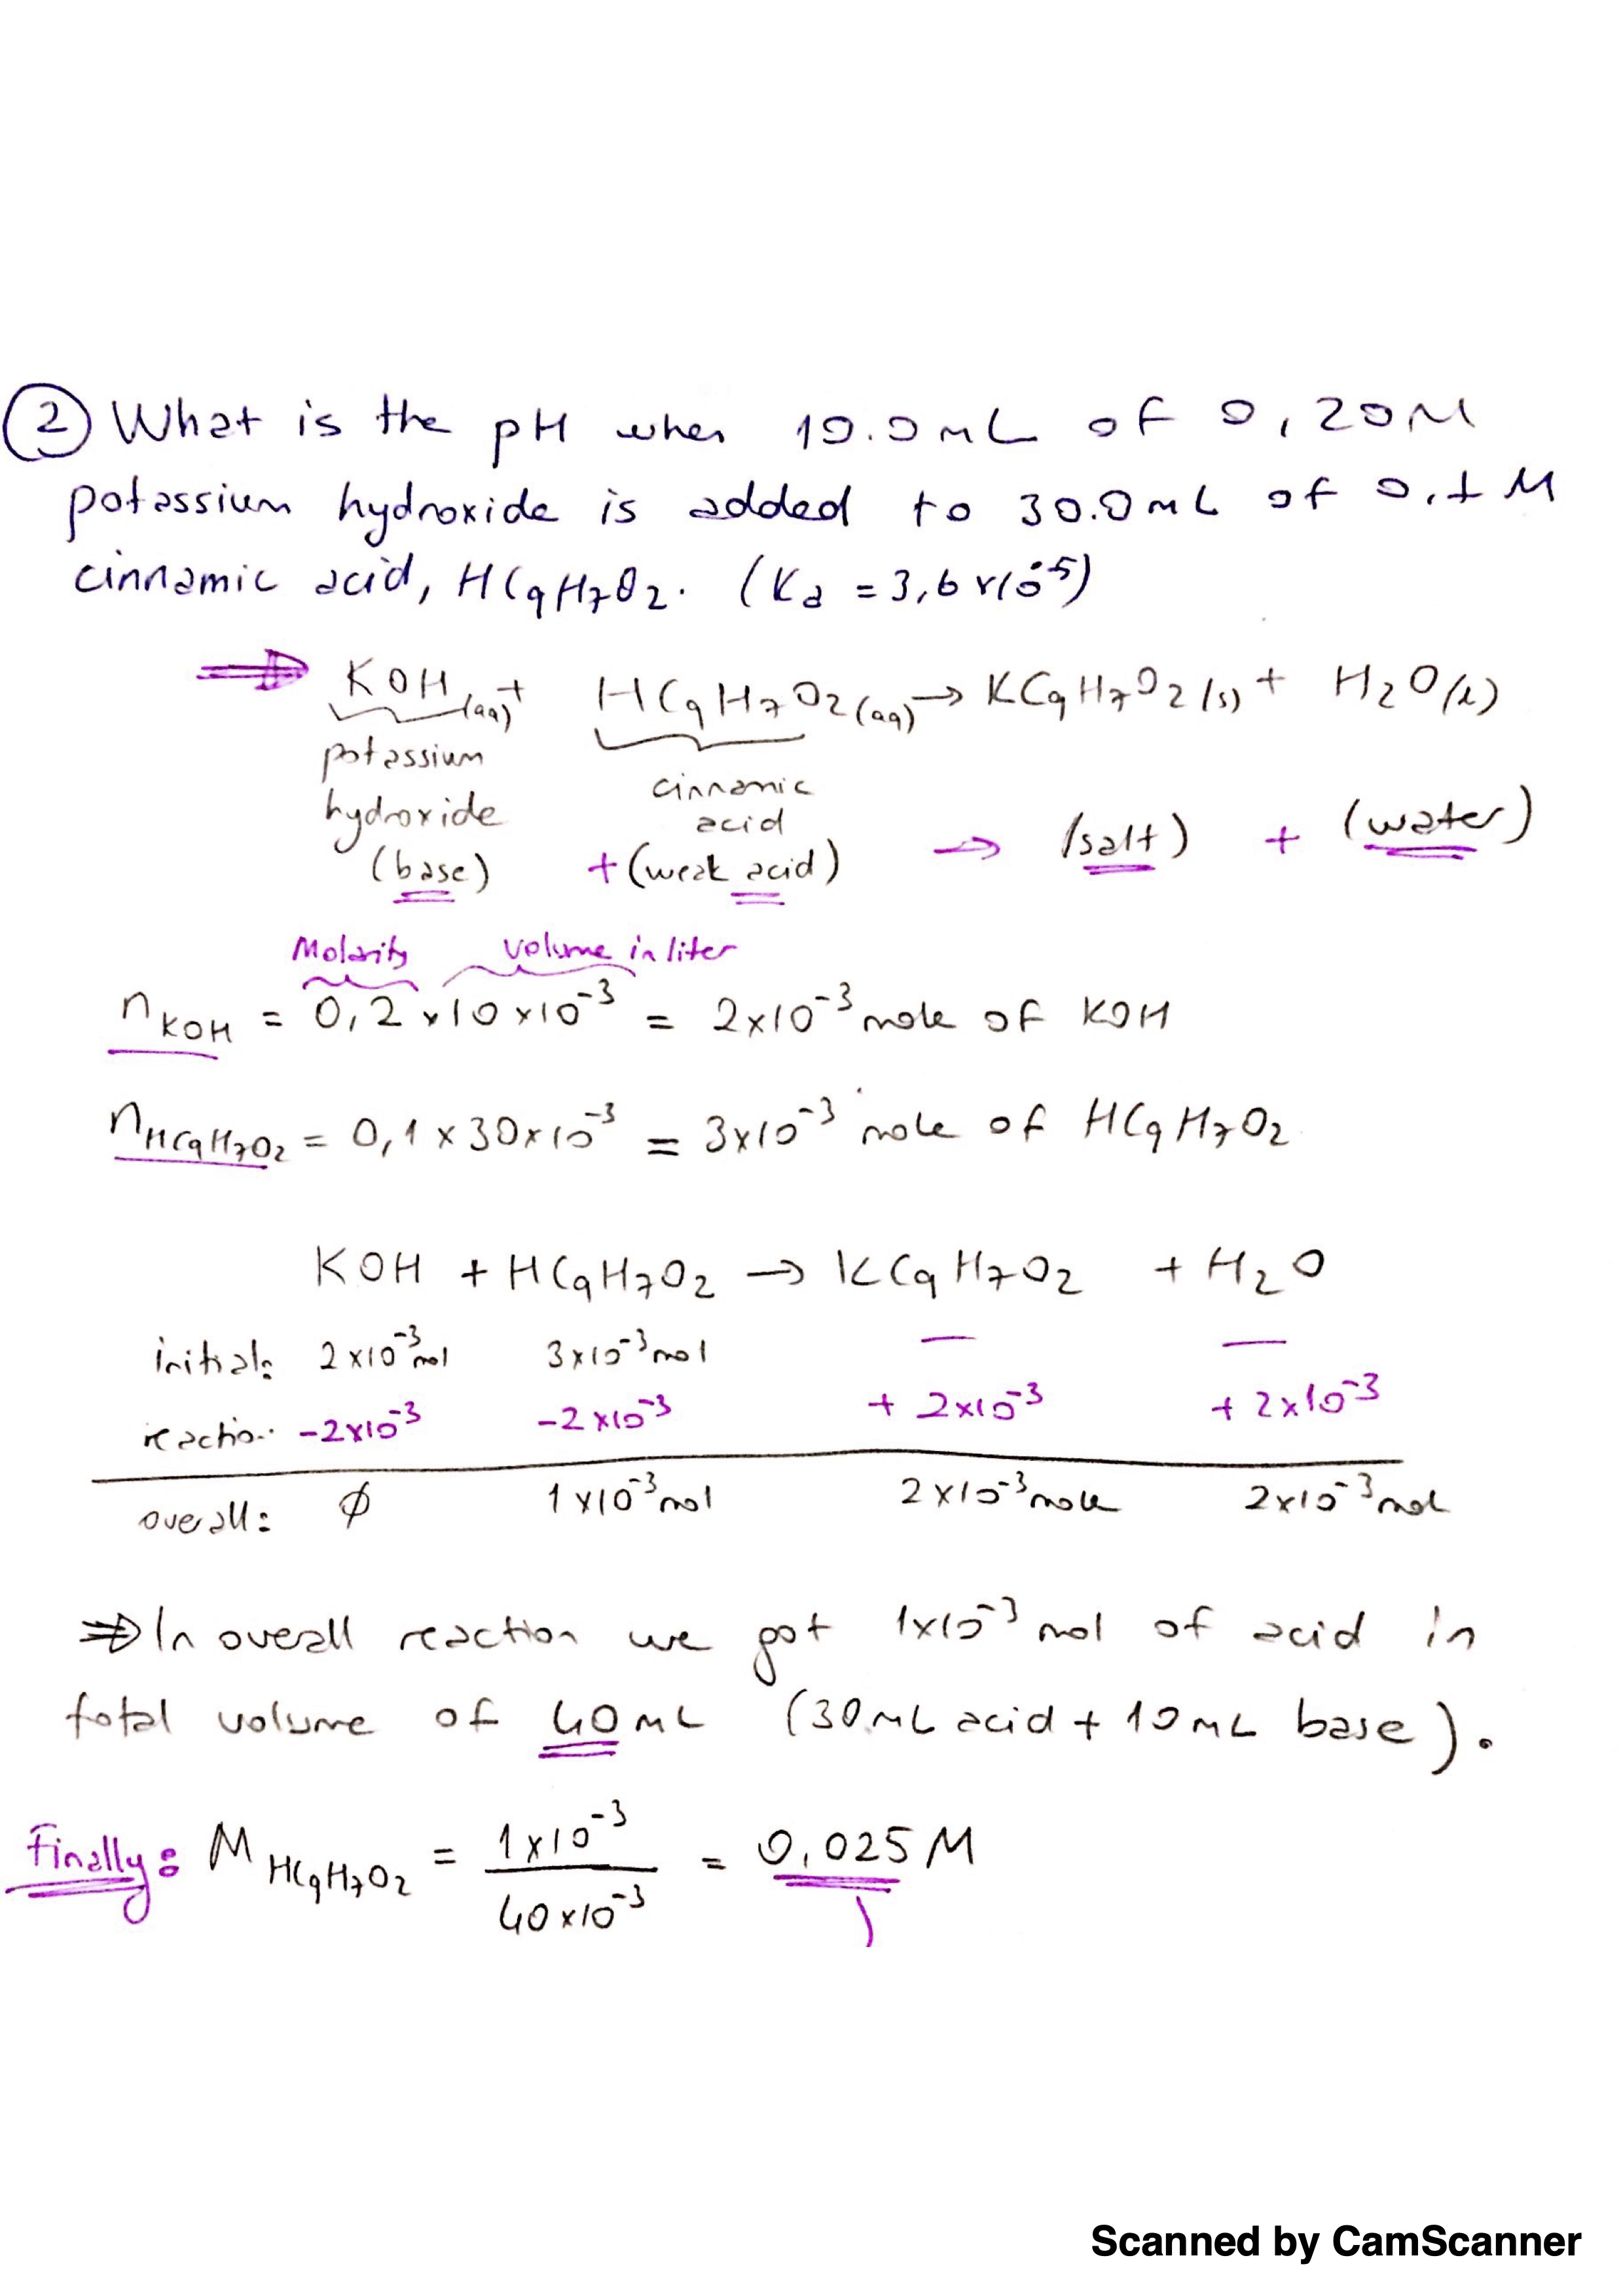 ② What is the pH when 10.0 mL of 0,20M
potassium hydroxide is added to 30.0mL of 0.1 M
cinnamic acid, HC9H7O2. (Ka = 3,6x10^-5)
⇒ KOH(aq) + HC9H7O2(aq) → KC9H7O2(s) + H2O(l)
potassium hydroxide (base) + cinnamic acid (weak acid) → (salt) + (water)
Molarity volume in liter
nKOH = 0,2 x 10 x 10^-3 = 2x10^-3 mole of KOH
nHC9H7O2 = 0,1 x 30x10^-3 = 3x10^-3 mole of HC9H7O2
KOH + HC9H7O2 → KC9H7O2 + H2O
initial: 2x10^-3 mol 3x10^-3 mol — —
reaction: -2x10^-3 -2x10^-3 + 2x10^-3 + 2x10^-3
overall: ∅ 1x10^-3 mol 2x10^-3 mole 2x10^-3 mol
⇒ In overall reaction we got 1x10^-3 mol of acid in
total volume of 40mL (30mL acid + 10mL base).
Finally: MHC9H7O2 = 1x10^-3 / 40x10^-3 = 0,025M
Scanned by CamScanner